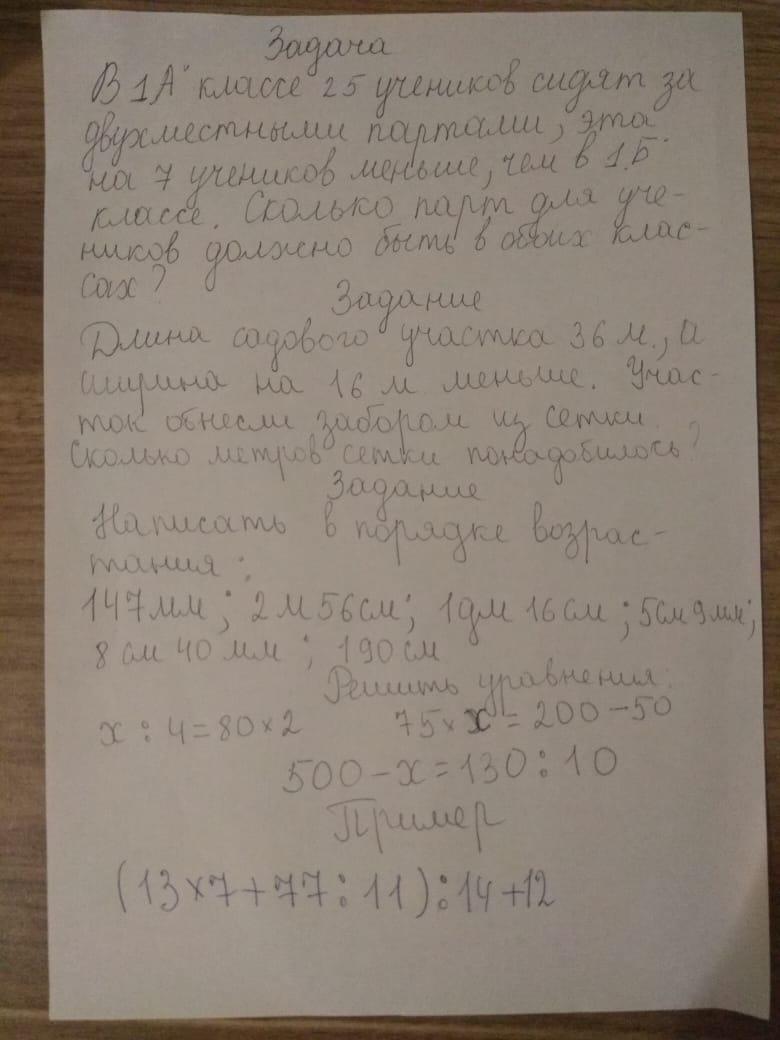 Задача
В 1 "А" классе 25 учеников сидят за
двухместными партами, эта
на 7 учеников меньше, чем в 1 "Б"
классе. Сколько парт для уче-
ников должно быть в обоих клас-
сах?
Задание
Длина садового участка 36 м., а
ширина на 16 м меньше. Учас-
ток обнесли забором из сетки.
Сколько метров сетки понадобилось?
Задание
Написать в порядке возрас-
тания:
147мм; 2м56см; 1дм 16см; 5см9мм;
8 см 40 мм; 190 см
Решить уравнения:
х : 4 = 80 × 2 75 × х = 200 - 50
500 - х = 130 : 10
Пример
(13 × 7 + 77 : 11) : 14 + 12